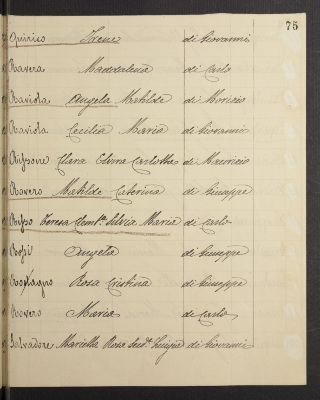 75
Quirico Irene di Giovanni
Ravera Maddalena di Carlo
Raviola Angela Matilde di Moricio
Raviola Cecilia Maria di Giovanni
Clara Elvira Carlotta di Mauricio
Rovero Matilde Caterina di Giuseppe
Teresa Clem.ª Silvia Maria di Carlo
Angela di Giuseppe
Rosa Cristina di Giuseppe
Rovero Maria di Carlo
Salvadore Mariella Rosa di Giovanni